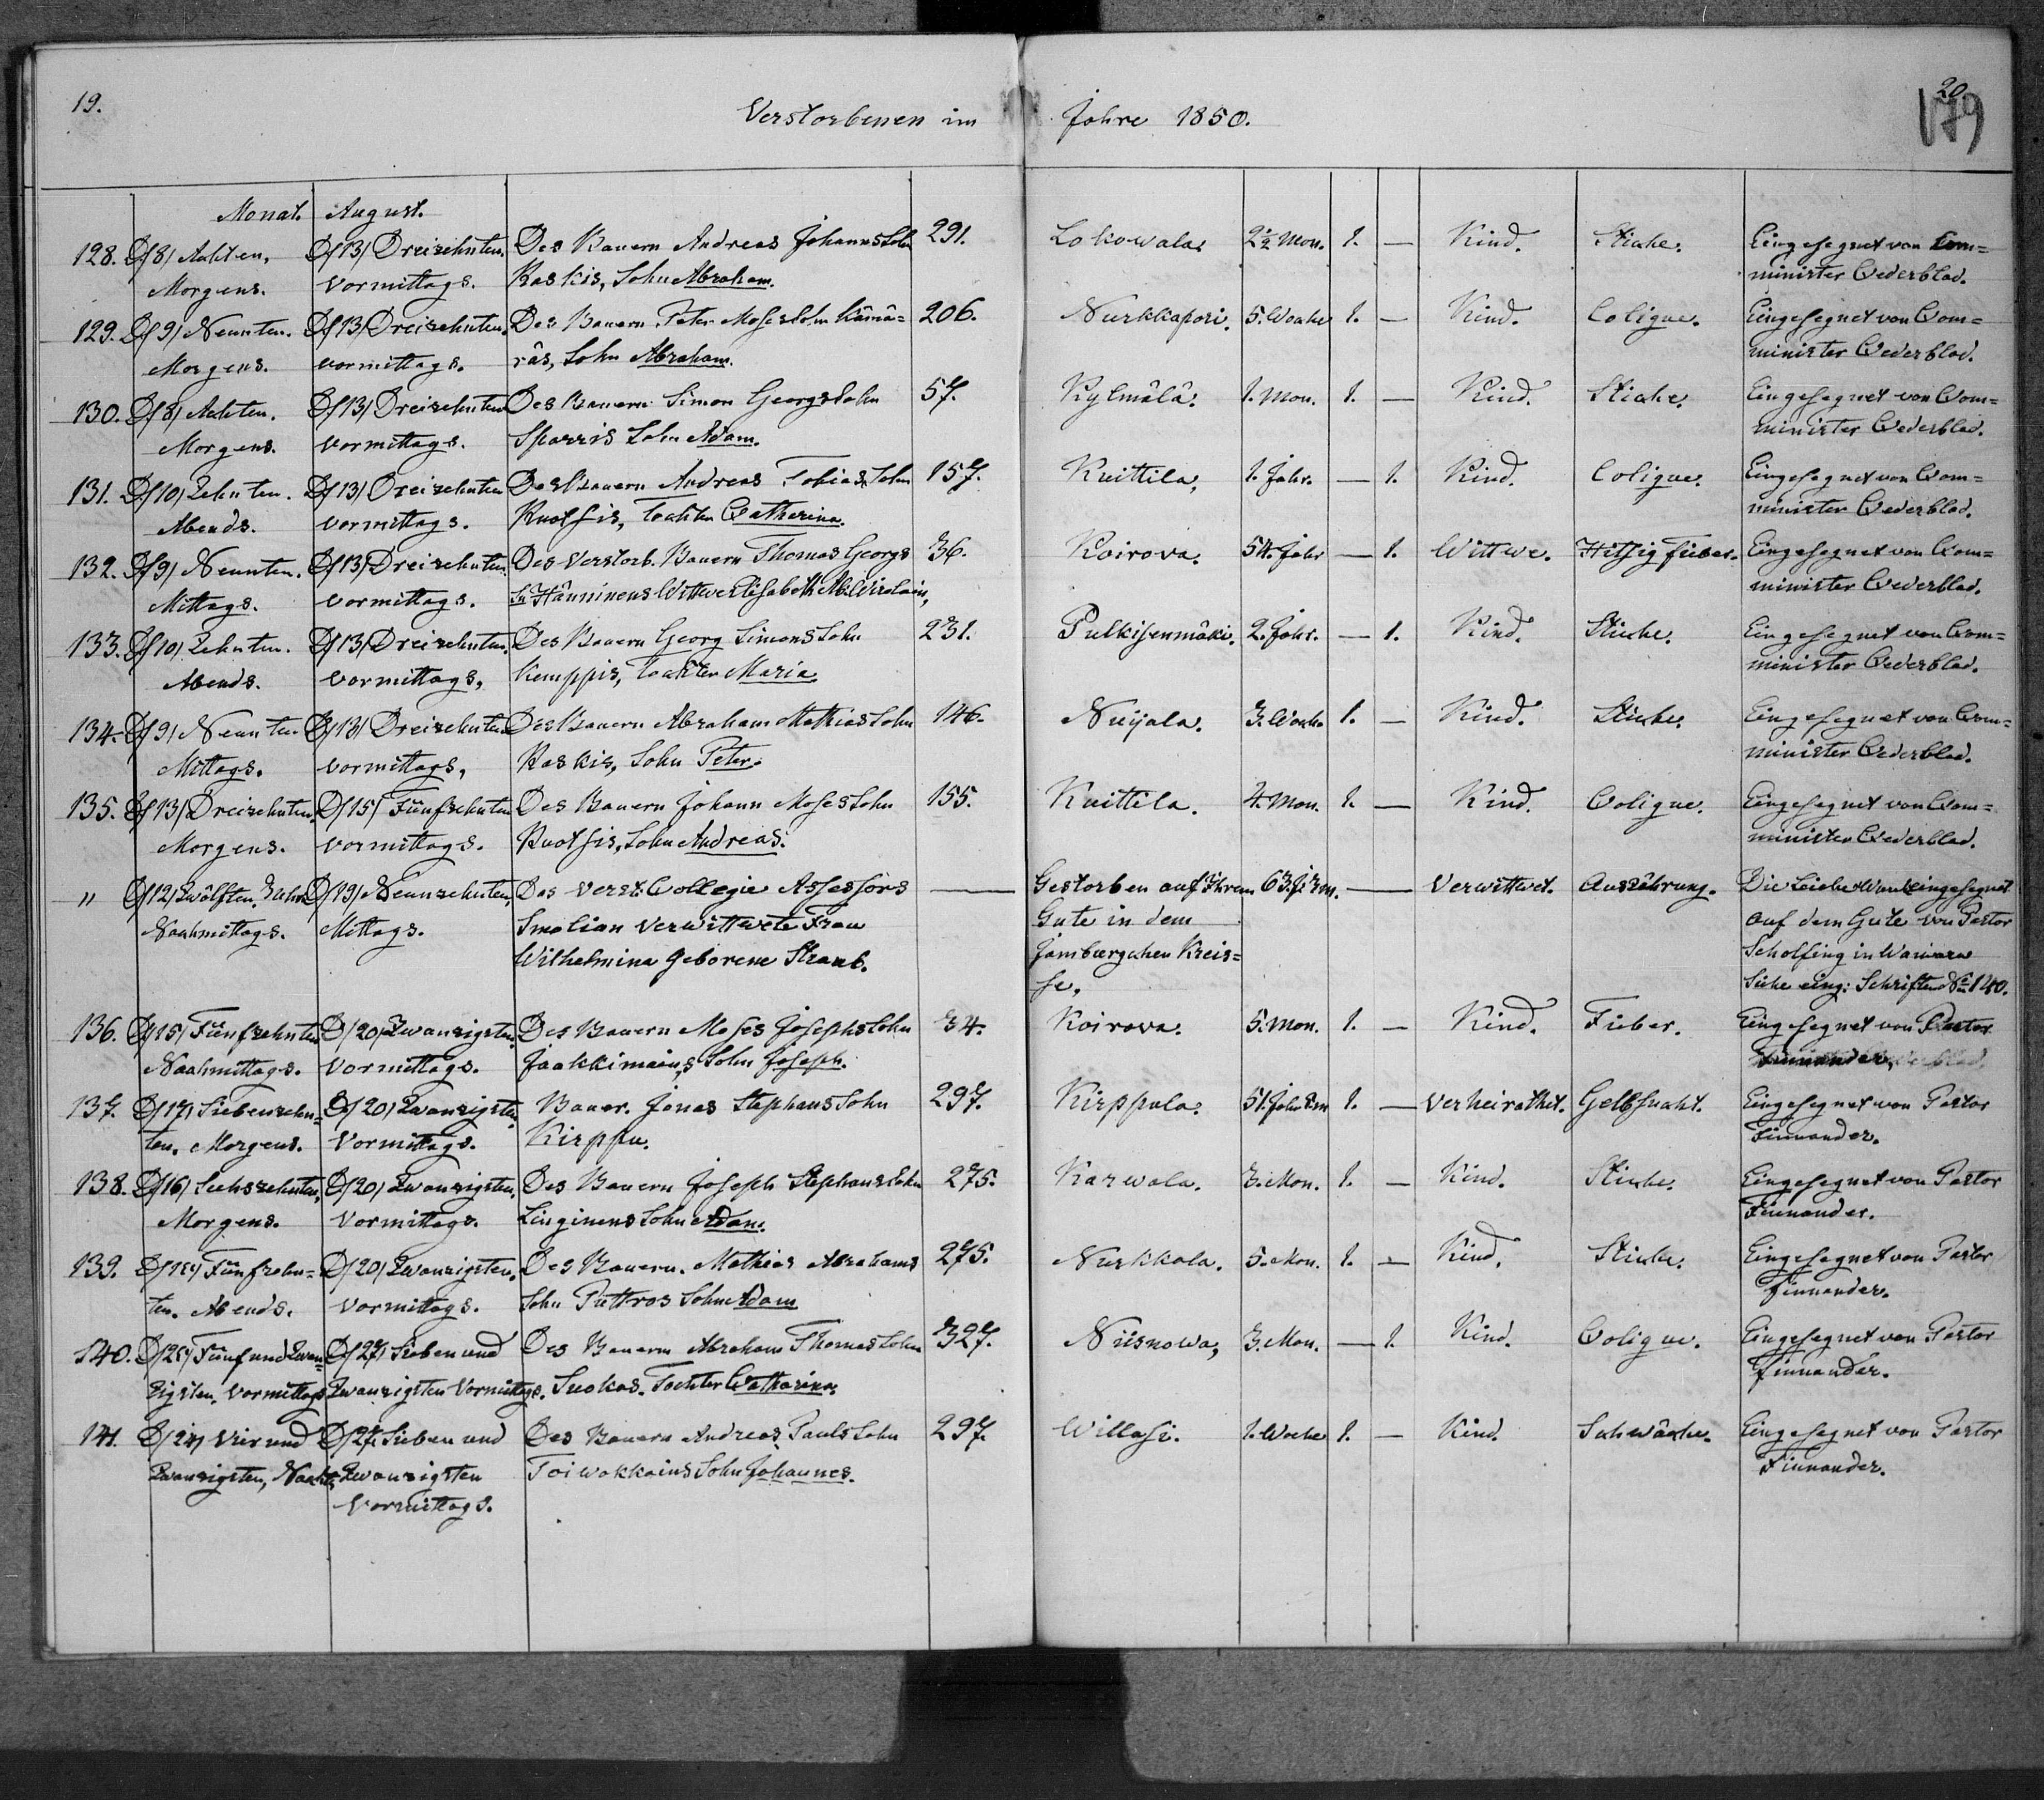 19.
Verstorbenen im Jahre 1850.
20
179
Monat. August.
128. D/8/ Achten, D/13/ Dreizehnten. Des Bauern Andreas Johanns Sohn 291. Lokowala. 2½ Mon. 1. — Kind. Stiche. Eingesegnet von Com=
Morgens. Vormittags. Raskis, Sohn Abraham. minister Cederblad.
129. D/9/ Neunten. D/13/ Dreizehnten. Des Bauern Peter Moses Sohn Kämä= 206. Nurkkapori. 5. Woche 1. — Kind. Colique. Eingesegnet von Com=
Morgens. vormittags. räs, Sohn Abraham. minister Cederblad.
130. D/8/ Achten. D/13/ Dreizehnten Des Bauern Simon Georgs Sohn 57. Kylmälä. 1. Mon. 1. — Kind. Stiche. Eingesegnet von Com=
Morgens. vormittags. Sparris Sohn Adam. minister Cederblad.
131. D/10/ Zehnten. D/13/ Dreizehnten Des Bauern Andreas Tobias Sohn 157. Knittila, 1. Jahr. — 1. Kind. Colique. Eingesegnet von Com=
Abends. vormittags. Ruotsis, Tochter Catharina. minister Cederblad.
132. D/9/ Neunten. D/13/ Dreizehnten. Des Verstorb. Bauern Thomas Georgs 36. Koirova. 54. Jahr — 1. Wittwe. Hitzig Fieber. Eingesegnet von Com=
Mittags. vormittags. Sn Hänninens Wittwe Elisabeth Ab: Wirolain, minister Cederblad.
133. D/10/ Zehnten. D/13/ Dreizehnten. Des Bauern Georg Simons Sohn 231. Pulkisenmäki. 2. Jahr. — 1. Kind. Stiche. Eingesegnet von Com=
Abends. vormittags, Kemppis, Tochter Maria minister Cederblad.
134. D/9/ Neunten D/13/ Dreizehnten Des Bauern Abraham Mathias Sohn 146. Nuijala. 3. Woche 1. — Kind. Stiche. Eingesegnet von Com=
Mittags. vormittags, Raskis, Sohn Peter. minister Cederblad.
135. D/13/ Dreizehnten. D/15/ Fünfzehnten Des Bauern Johann Moses Sohn 155. Knittila. 4. Mon. 1. — Kind. Colique. Eingesegnet von Com=
Morgens. vormittags. Ruotsis, Sohn Andreas. minister Cederblad.
" D/12/ Zwölften, D/19/ Neunzehnten, Des verst. Collegie Assessors — Gestorben auf Ihrem 63. J. 3 m. — Verwittwet. Auszährung. Die Leiche Ward eingesegnet
Nachmittags. Mittags. Smolian Verwittwete Frau Gute in dem auf dem Gute von Pastor
Wilhelmina geborene Straub. Jamburgchen Kreis= Scholfing in Waiwara
se, Siehe eing: Schriften No 140.
136. D/15/ Fünfzehnten D/20/ Zwanzigsten. Des Bauern Moses Josephs Sohn 34. Koirova. 5. Mon. 1. — Kind. Fieber. Eingesegnet von Pastor
Nachmittags. Vormittags. Jaakkimain,s Sohn Joseph. Finnander.
137. D/17/ Siebenzehn= D/20/ Zwanzigsten, Bauer. Jonas Stephans Sohn 297. Kirppula. 51. Jahr 2 m 1. — Verheirathet. Gelbsucht. Eingesegnet von Pastor
ten. Morgens. Vormittags. Kirppu. Finnander.
138. D/16/ Sechszehnten, D/20/ Zwanzigsten, Des Bauern Joseph Stephans Sohn 275. Karwala. 3. Mon. 1. — Kind. Stiche. Eingesegnet von Pastor
Morgens. Vormittags. Linginens Sohn Adam. Finnander.
139. D/15/ Fünfzehn= D/20/ Zwanzigsten. Des Bauern. Mathias Abrahams 275. Nurkkala. 5. Mon. 1. — Kind. Stiche. Eingesegnet von Pastor
ten. Abends. Vormittags. Sohn Puttros Sohn Adam Finnander.
140. D/25/ Fünf und Zwan= D/27/ Sieben und Des Bauern Abraham Thomas Sohn 327. Niisnowa, 3. Mon. — 1. Kind. Colique. Eingesegnet von Pastor
zigsten, Vormittags Zwanzigsten Vormittags. Suokas. Tochter Catharina. Finnander.
141. D/24/ Vier und D/27/ Sieben und Des Bauern Andreas Pauls Sohn 297. Willasi. 1. Woche 1. — Kind. Schwäche. Eingesegnet von Pastor
Zwanzigsten, Nachts, Zwanzigsten Toiwokkains Sohn Johannes. Finnander.
Vormittags.